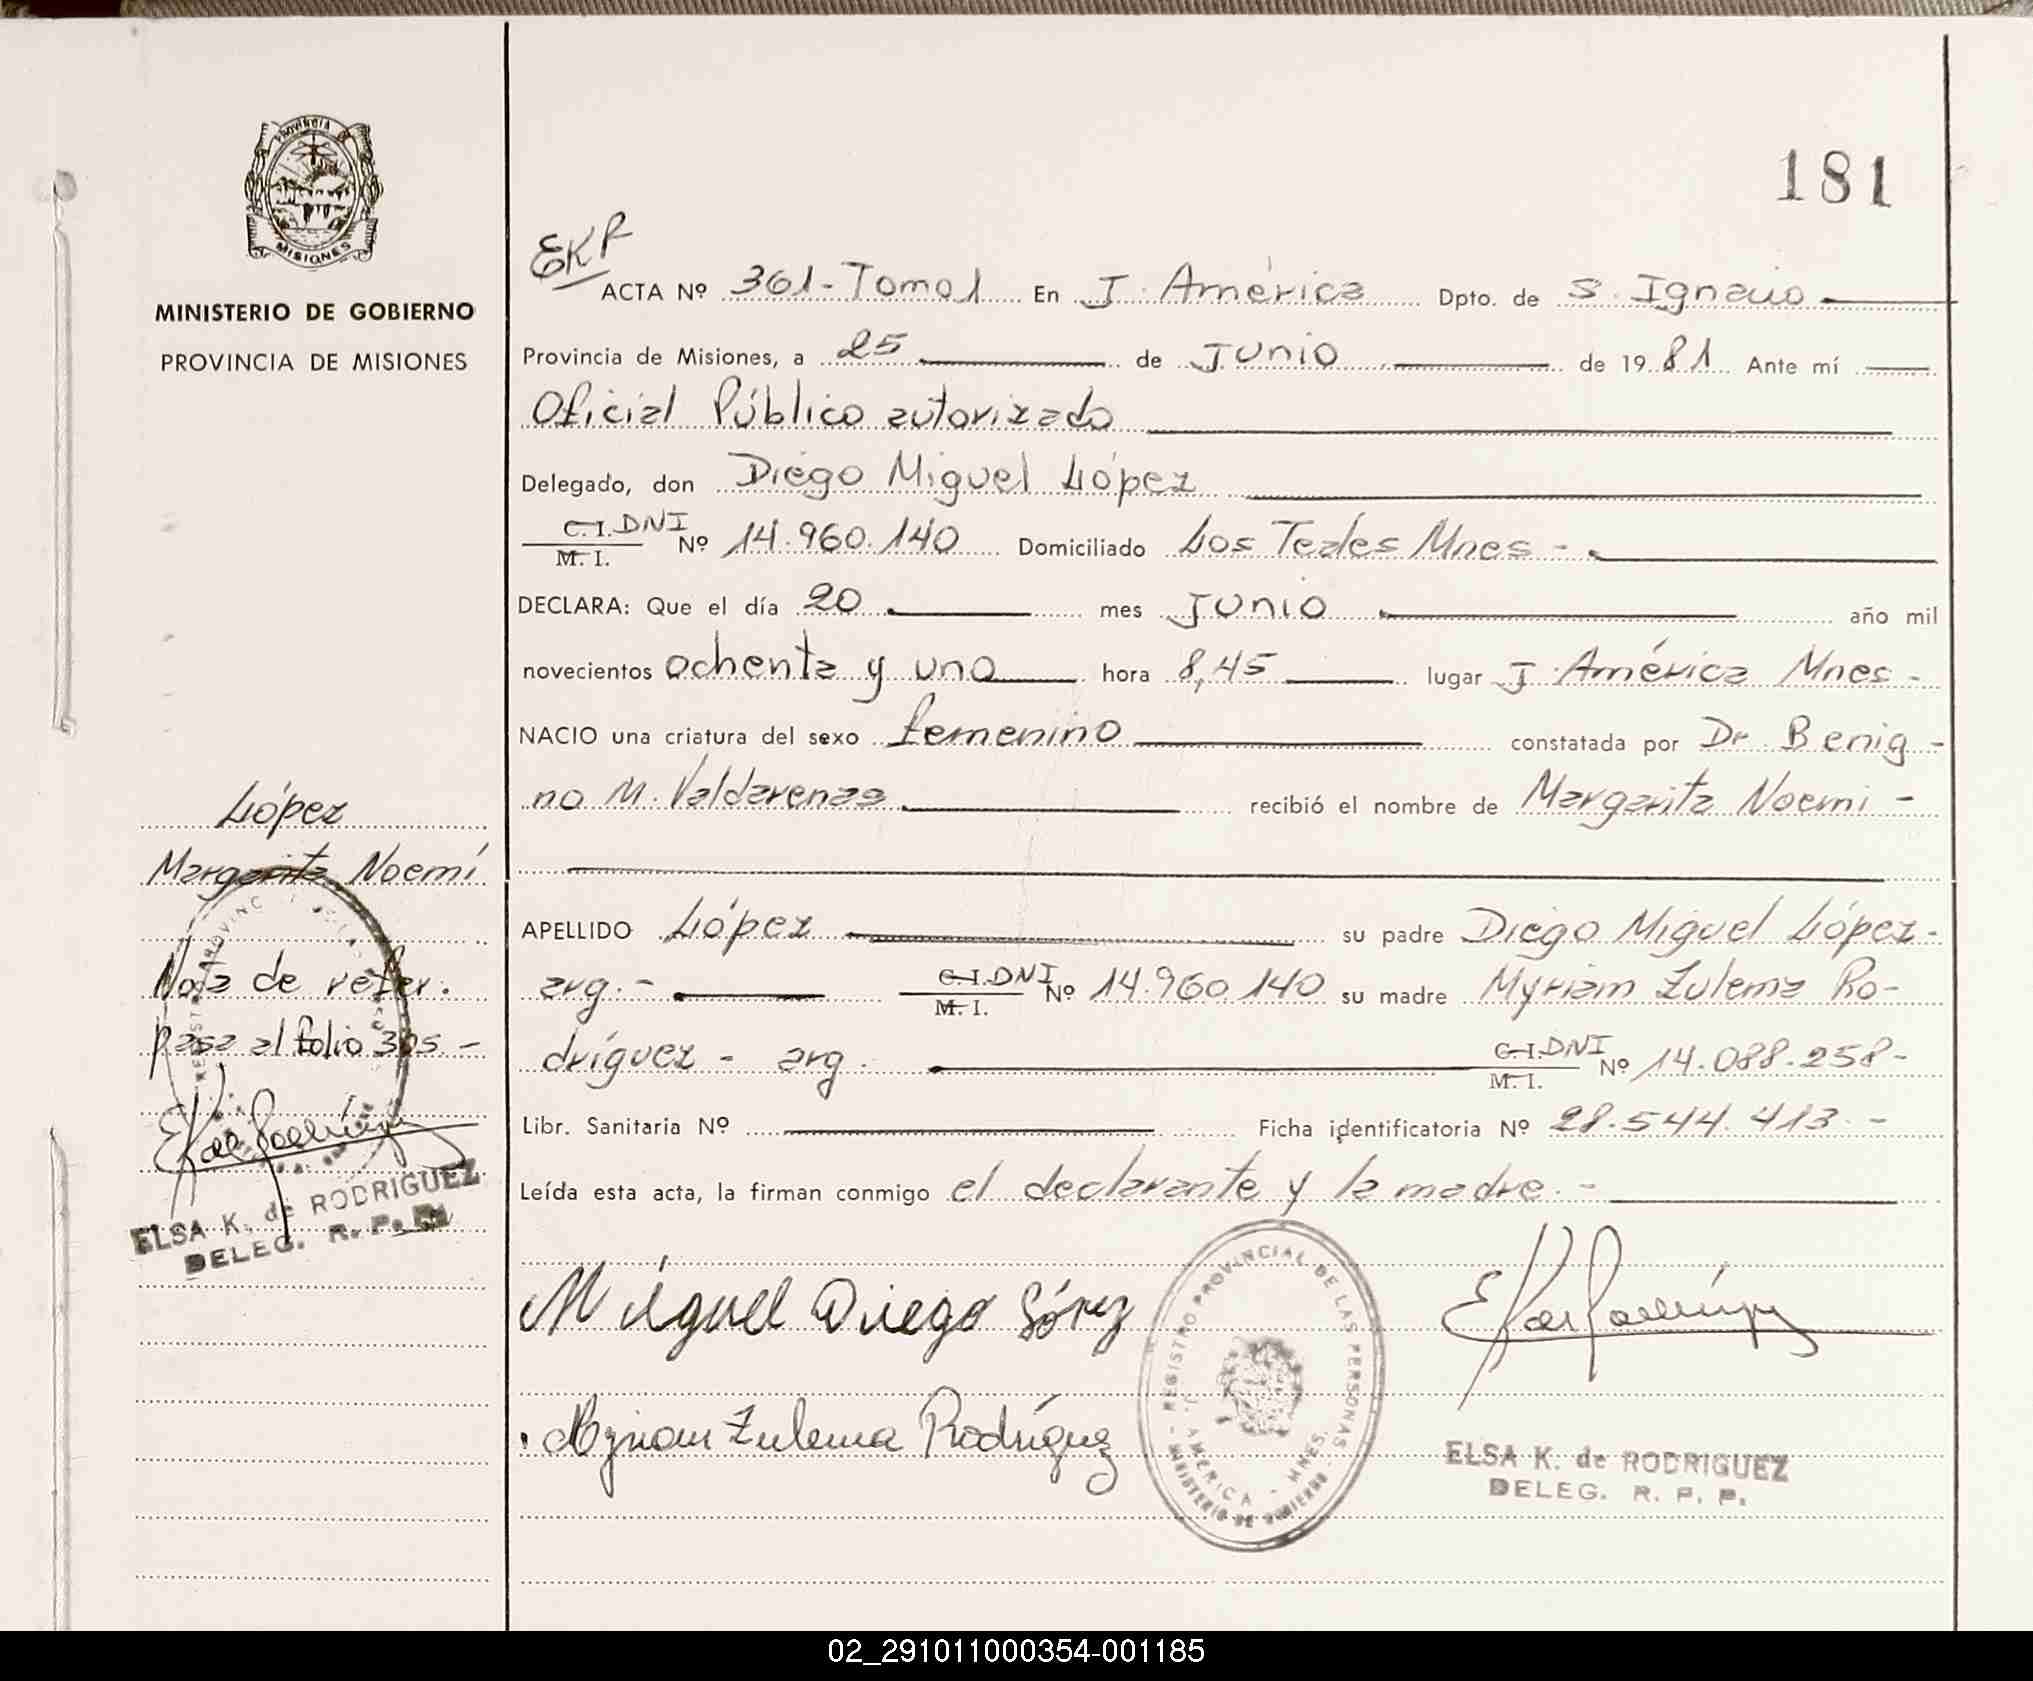 PROVINCIA DE
MISIONES
MINISTERIO DE GOBIERNO
PROVINCIA DE MISIONES
López
Margarita Noemí
Nota de refer.
pasa al folio 305.-
ELSA K. de RODRIGUEZ
DELEG. R. P. P.
181
EKR
ACTA Nº 361-Tomo1 En J. América Dpto. de S. Ignacio
Provincia de Misiones, a 25 de Junio de 1981 Ante mí
Oficial Público autorizado
Delegado, don Diego Miguel López
C.I. DNI
M. I. Nº 14.960.140 Domiciliado Los Teales Mnes -
DECLARA: Que el día 20 mes Junio año mil
novecientos ochenta y uno hora 8,45 lugar J. América Mnes -
NACIO una criatura del sexo femenino constatada por Dr. Benig-
no M. Valdarenas recibió el nombre de Margarita Noemi -
APELLIDO López su padre Diego Miguel López -
arg. - C.I. DNI M. I. Nº 14.960.140 su madre Myriam Zulema Ro-
dríguez - arg. C.I. DNI M. I. Nº 14.088.258 -
Libr. Sanitaria Nº Ficha identificatoria Nº 28.544.413. -
Leída esta acta, la firman conmigo el declarante y la madre. -
Miguel Diego López
Myriam Zulema Rodríguez
REGISTRO PROVINCIAL DE LAS PERSONAS
J. AMERICA - MNES.
MINISTERIO DE GOBIERNO
ELSA K. de RODRIGUEZ
DELEG. R. P. P.
02_291011000354-001185